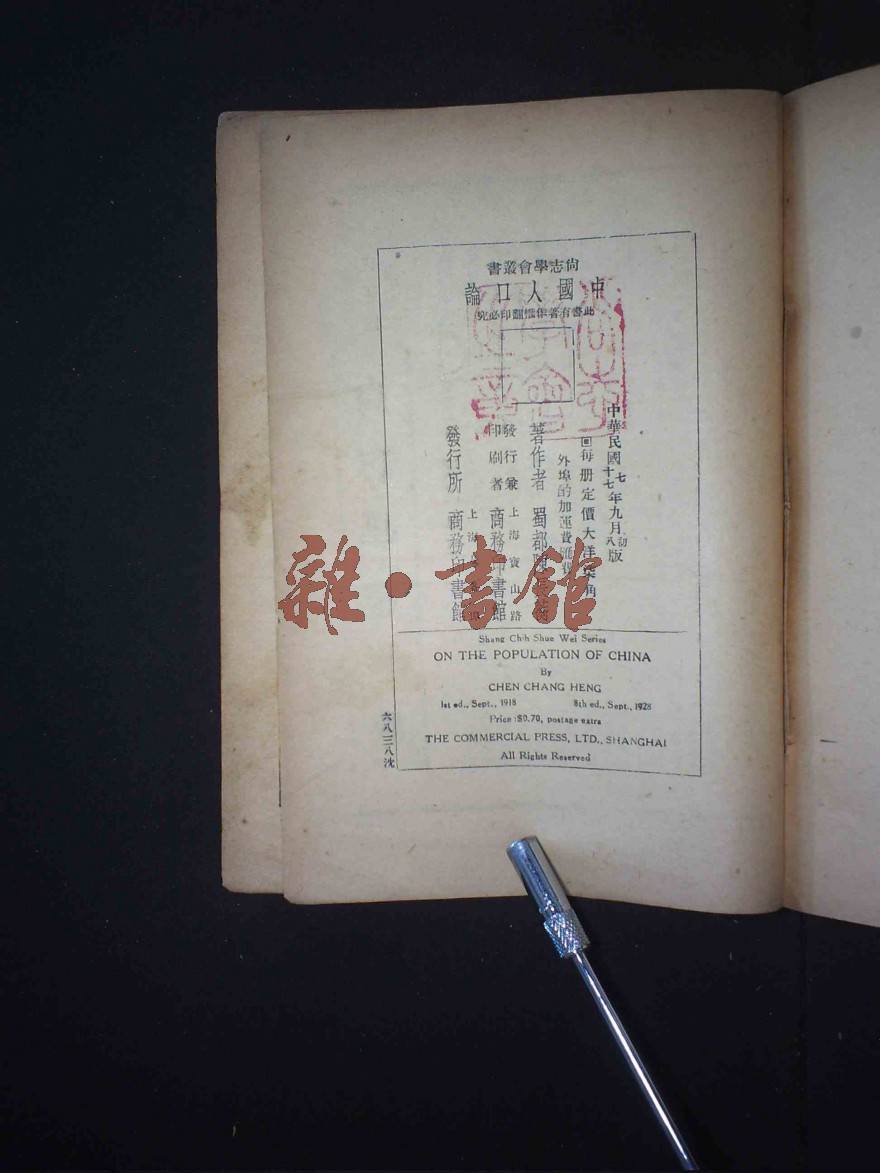 尙志學會叢書
中國人口論
此書有著作權翻印必究
中華民國七年九月初版
十七八
每册定價大洋柒角
外埠酌加運費匯費
著作者 蜀都陳長蘅
發行兼印刷者 上海寶山路 商務印書館
發行所 上海 商務印書館
Shang Chih Shue Wei Series
ON THE POPULATION OF CHINA
By
CHEN CHANG HENG
1st ed., Sept., 1918 8th ed., Sept., 1928
Price :$0.70, postage extra
THE COMMERCIAL PRESS, LTD., SHANGHAI
All Rights Reserved
六八三八沈
雜·書館